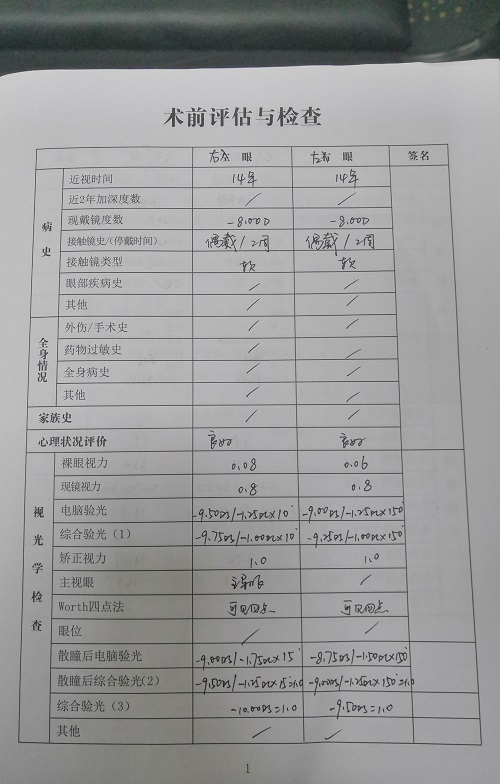 术前评估与检查
右 眼 左 眼 签名
病史
近视时间 14年 14年
近2年加深度数 / /
现戴镜度数 -8.00D -8.00D
接触镜史/(停戴时间) 偶戴/2周 偶戴/2周
接触镜类型 软 软
眼部疾病史 / /
其他 / /
全身情况
外伤/手术史 / /
药物过敏史 / /
全身病史 / /
其他 / /
家族史 / /
心理状况评价 良好 良好
视光学检查
裸眼视力 0.08 0.06
现镜视力 0.8 0.8
电脑验光 -9.50DS/-1.25DC×10° -9.00DS/-1.25DC×150°
综合验光(1) -9.75DS/-1.00DC×10° -9.25DS/-1.00DC×150°
矫正视力 1.0 1.0
主视眼 主视眼 /
Worth四点法 可见四点 可见四点
眼位 / /
散瞳后电脑验光 -9.00DS/-1.75DC×15° -8.75DS/-1.50DC×150°
散瞳后综合验光(2) -9.50DS/-1.25DC×15°=1.0 -9.00DS/-1.25DC×150°=1.0
综合验光(3) -10.00DS=1.0 -9.50DS=1.0
其他 / /
1